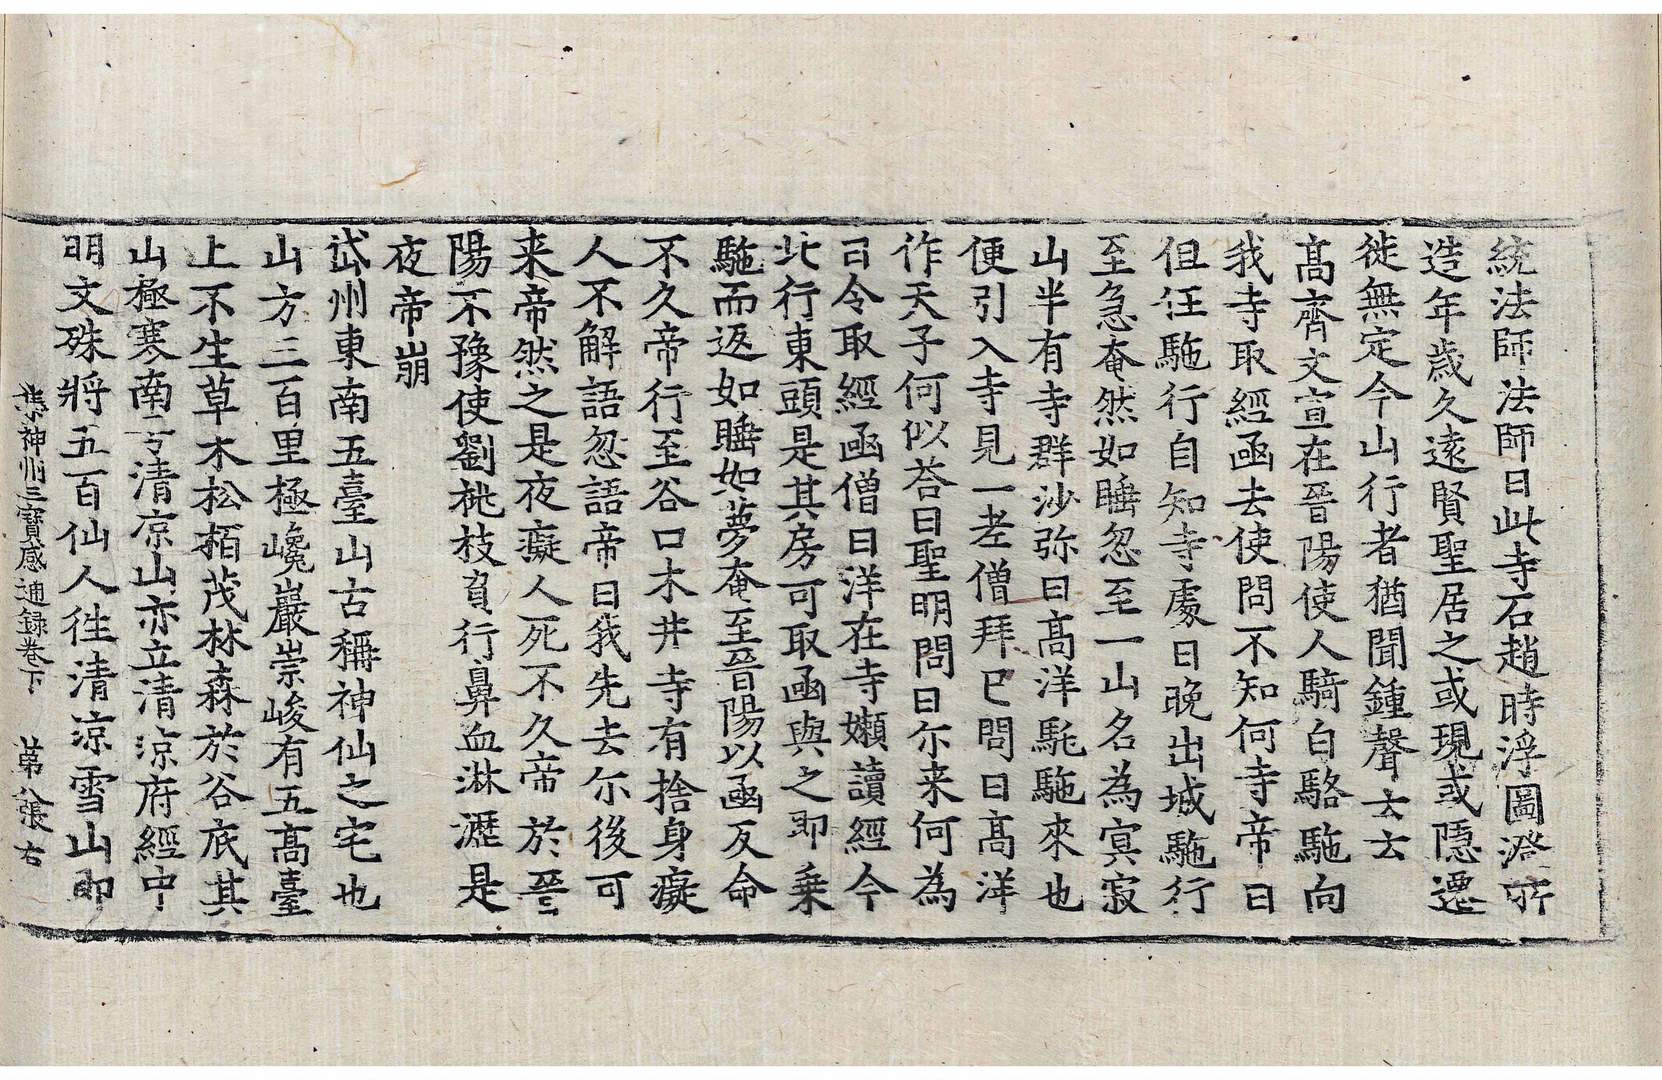 統法師法師曰此寺石趙時浮圖澄所
造年歲久遠賢聖居之或現或隱遷
徙無定今山行者猶聞鍾聲云云
髙齊文宣在晉陽使人騎白駱駞向
我寺取經函去使問不知何寺帝曰
但任駞行自知寺處日晚出城駞行
至急奄然如睡忽至一山名為㝠寂
山半有寺群沙弥曰髙洋駞駞來也
便引入寺見一老僧拜已問曰髙洋
作天子何似荅曰聖明問曰尓来何為
曰令取經函僧曰洋在寺嬾讀經今
北行東頭是其房可取函與之即乗
駞而返如睡如夢奄至晉陽以函反命
不久帝行至谷口木井寺有捨身癡
人不解語忽語帝曰我先去尓後可
来帝然之是夜癡人死不久帝於晉
陽不豫使劉桃枝負行鼻血淋瀝是
夜帝崩
岱州東南五臺山古稱神仙之宅也
山方三百里極巉巖崇峻有五髙臺
上不生草木松栢茂林森於谷底其
山極寒南号清凉山亦立清凉府經中
明文殊將五百仙人徃清涼雪山即
集神州三寶感通録卷下 第八張 右